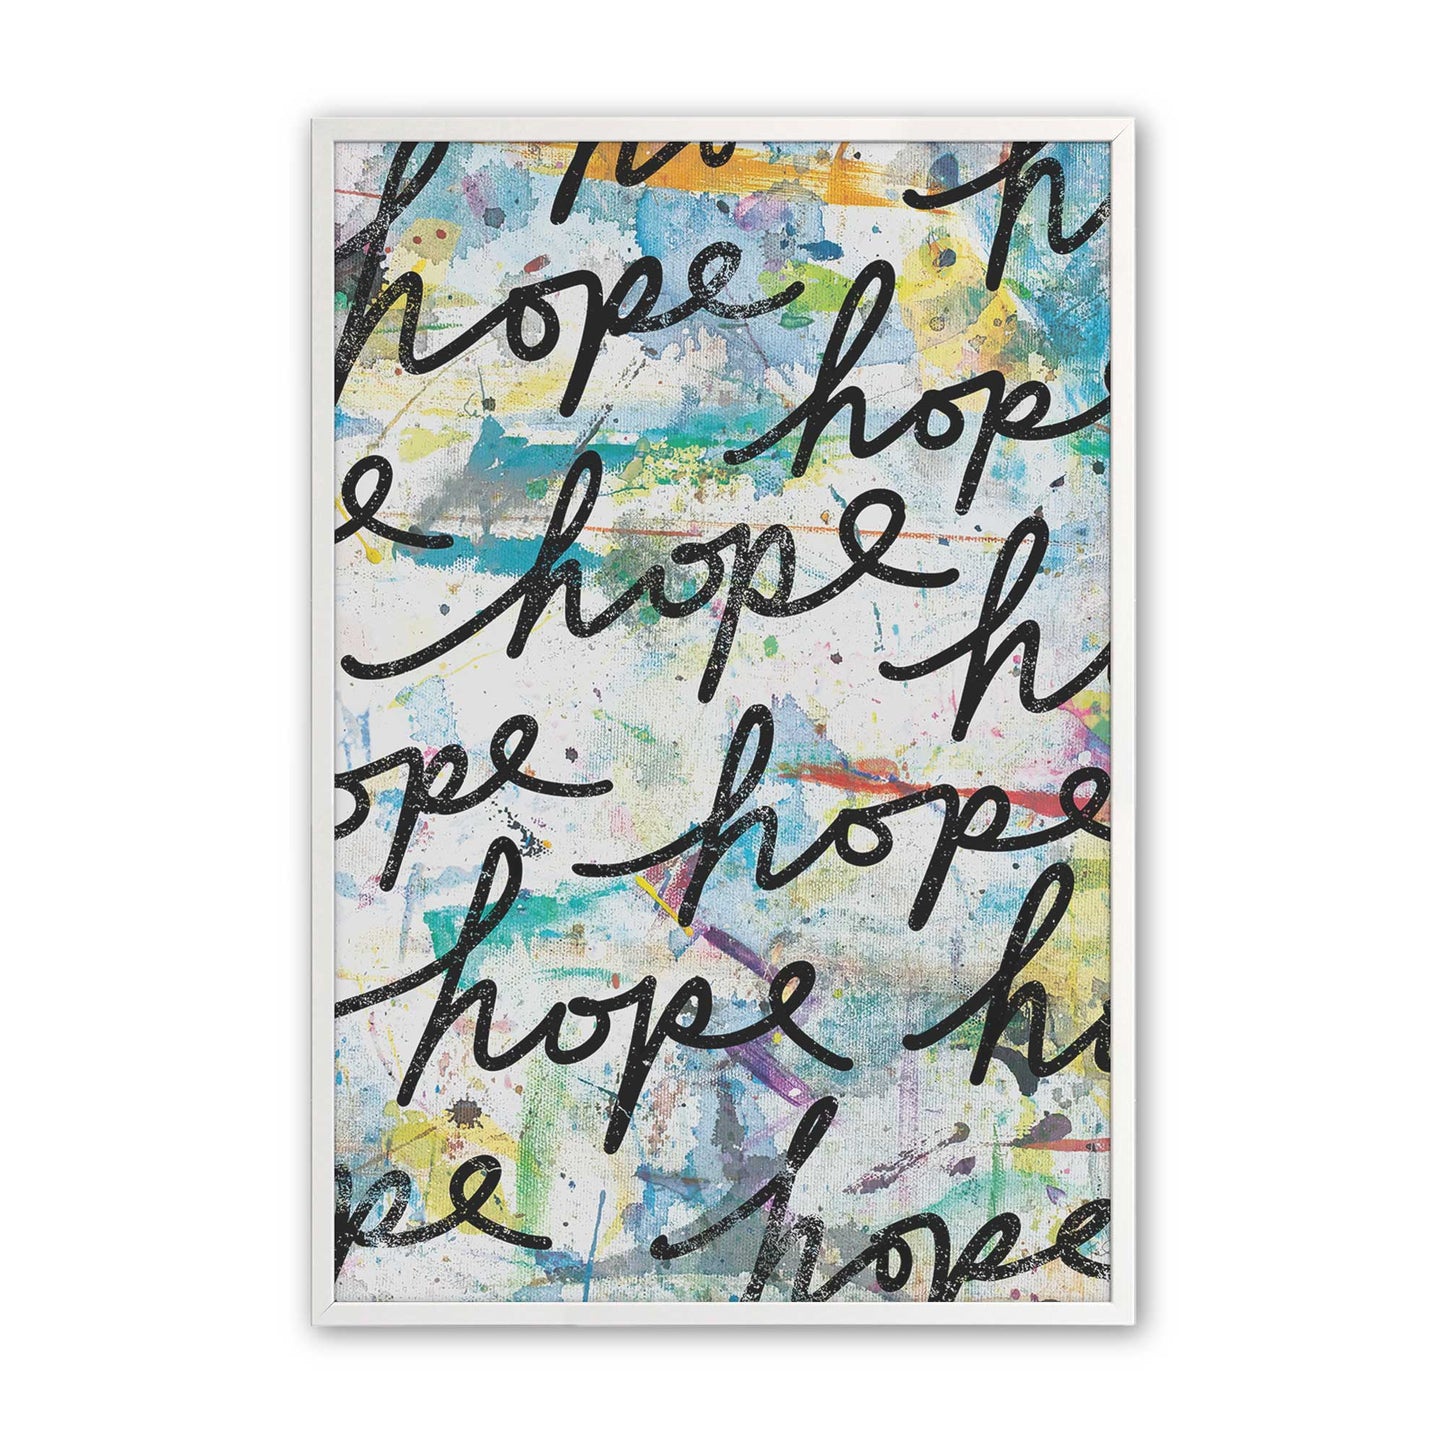 ho h
hope
hop
e hope h
ope hope
hope ho
pe hope